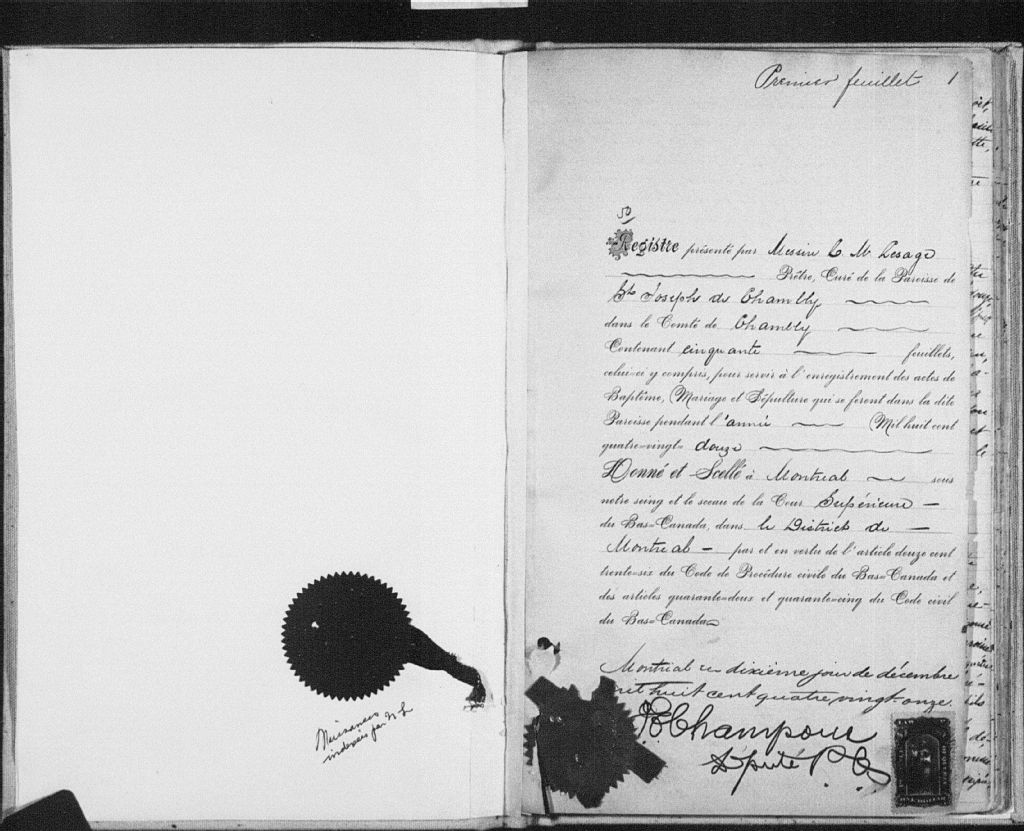 Premier feuillet 1
50
Registre présenté par Messire L. M. Lesage
Prêtre, Curé de la Paroisse de
St Joseph de Chambly
dans le Comté de Chambly
Contenant cinquante feuillets,
celui-ci y compris, pour servir à l'enregistrement des actes de
Baptême, Mariage et Sépulture qui se feront dans la dite
Paroisse pendant l'année Mil huit cent
quatre-vingt- douze
Donné et Scellé à Montreal sous
notre seing et le sceau de la Cour Supérieure
du Bas-Canada, dans le District de
Montreal - par et en vertu de l'article douze cent
trente-six du Code de Procédure civile du Bas-Canada et
des articles quarante-deux et quarante-cinq du Code civil
du Bas-Canada
Montreal ce dixième jour de décembre
mil huit cent quatre vingt-onze.
Champoux
Député P.
Naissances
indexées par
ONE DOLLAR